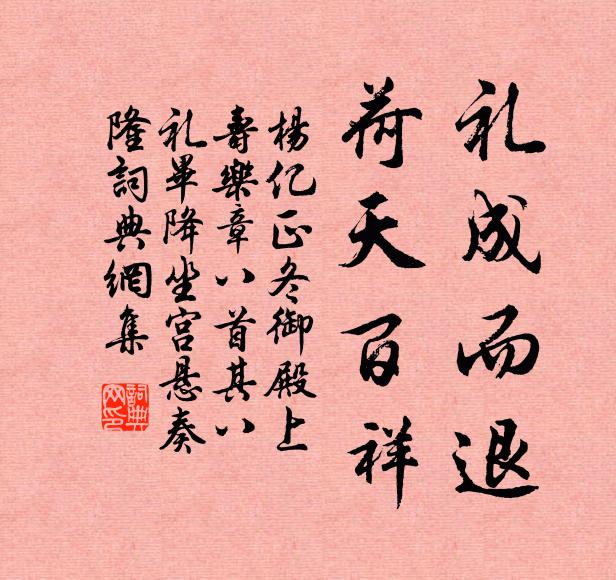 礼成而退
荷天百祥
杨亿正冬御殿上
寿樂章八首其八
礼畢降坐宫悬奏
隆詞典網集
詞典
网印